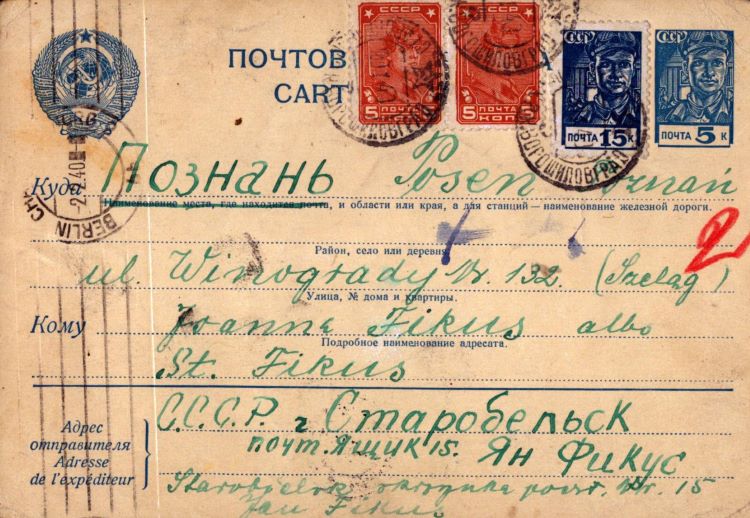 СССР
5 ПОЧТА КОП. 5
СССР
5 ПОЧТА КОП. 5
СССР
ПОЧТА 15 К
СССР
ПОЧТА 5 К
ПОЧТОВ
CART
ВОРОШИЛОВГРАД
BERLIN
40
Куда Познань Posen Poznań
Наименование места, где находится почта, и области или края, а для станций — наименование железной дороги.
Район, село или деревня.
ul. Winogrady Nr. 132. (Szeląg)
2
Улица, № дома и квартиры.
Кому Joanna Fikus albo
Подробное наименование адресата.
St. Fikus
Адрес отправителя
Adresse de l'expéditeur
С.С.С.Р. г Старобельск
почт. ящик 15. Ян Фикус
Starobielsk skrzynka poczt. Nr. 15
Jan Fikus